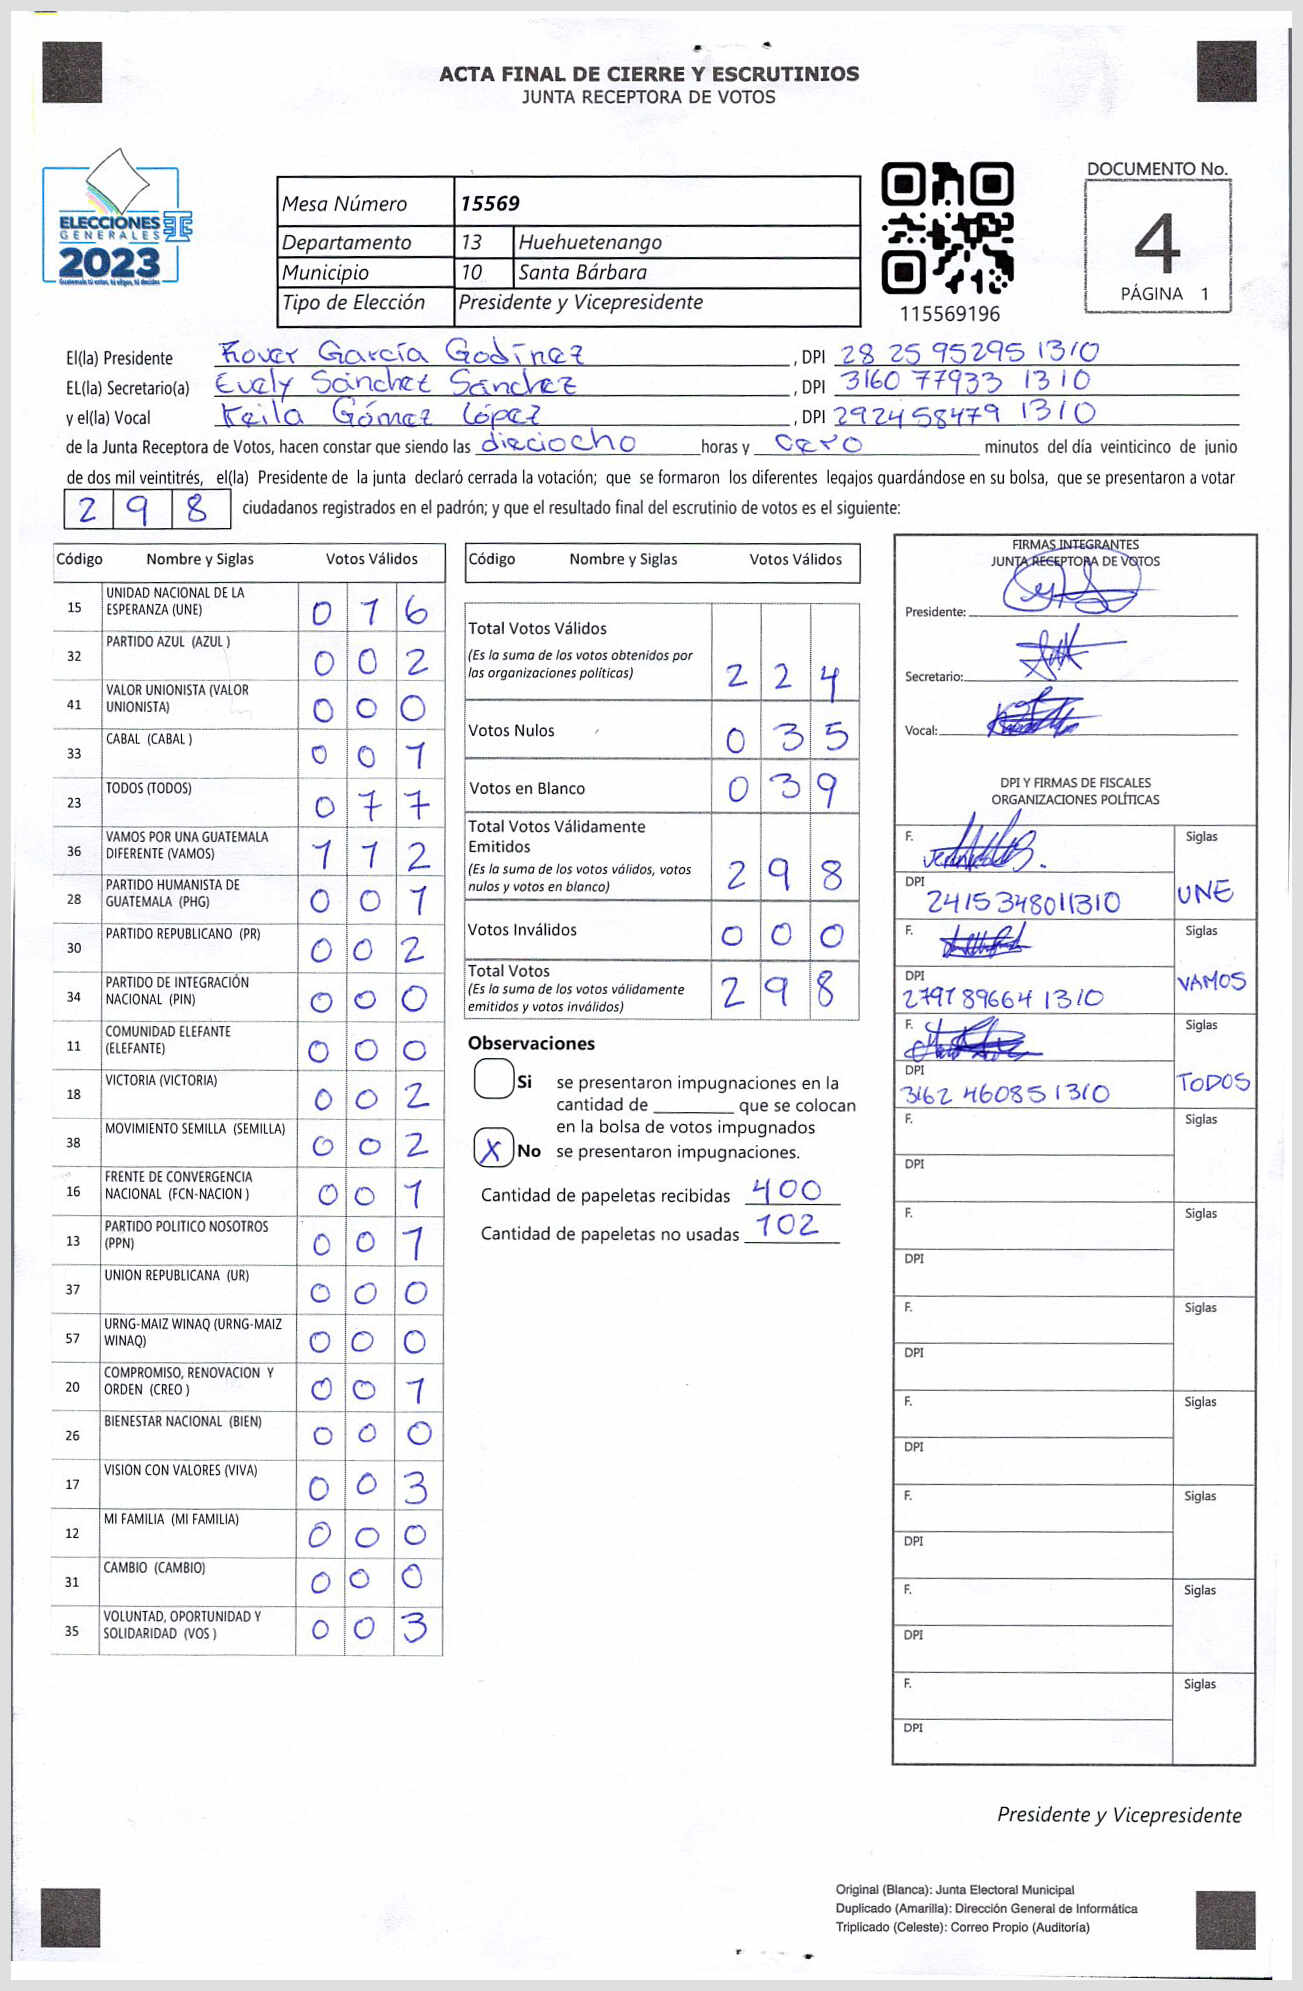 ACTA FINAL DE CIERRE Y ESCRUTINIOS
JUNTA RECEPTORA DE VOTOS
ELECCIONES
GENERALES
2023
Mesa Número 15569
Departamento 13 Huehuetenango
Municipio 10 Santa Bárbara
Tipo de Elección Presidente y Vicepresidente
115569196
DOCUMENTO No.
4
PÁGINA 1
El(la) Presidente Rover García Godínez, DPI 28 25 95295 1310
EL(la) Secretario(a) Evely Sánchez Sánchez, DPI 3160 77933 1310
y el(la) Vocal Keila Gómez López, DPI 292458479 1310
de la Junta Receptora de Votos, hacen constar que siendo las dieciocho horas y cero minutos del día veinticinco de junio
de dos mil veintitrés, el(la) Presidente de la junta declaró cerrada la votación; que se formaron los diferentes legajos guardándose en su bolsa, que se presentaron a votar
298 ciudadanos registrados en el padrón; y que el resultado final del escrutinio de votos es el siguiente:
Código Nombre y Siglas Votos Válidos
15 UNIDAD NACIONAL DE LA
ESPERANZA (UNE) 016
32 PARTIDO AZUL (AZUL ) 002
41 VALOR UNIONISTA (VALOR
UNIONISTA) 000
33 CABAL (CABAL ) 001
23 TODOS (TODOS) 077
36 VAMOS POR UNA GUATEMALA
DIFERENTE (VAMOS) 112
28 PARTIDO HUMANISTA DE
GUATEMALA (PHG) 001
30 PARTIDO REPUBLICANO (PR) 002
34 PARTIDO DE INTEGRACIÓN
NACIONAL (PIN) 000
11 COMUNIDAD ELEFANTE
(ELEFANTE) 000
18 VICTORIA (VICTORIA) 002
38 MOVIMIENTO SEMILLA (SEMILLA) 002
16 FRENTE DE CONVERGENCIA
NACIONAL (FCN-NACION ) 001
13 PARTIDO POLITICO NOSOTROS
(PPN) 001
37 UNION REPUBLICANA (UR) 000
57 URNG-MAIZ WINAQ (URNG-MAIZ
WINAQ) 000
20 COMPROMISO, RENOVACION Y
ORDEN (CREO ) 001
26 BIENESTAR NACIONAL (BIEN) 000
17 VISION CON VALORES (VIVA) 003
12 MI FAMILIA (MI FAMILIA) 000
31 CAMBIO (CAMBIO) 000
35 VOLUNTAD, OPORTUNIDAD Y
SOLIDARIDAD (VOS ) 003
Código Nombre y Siglas Votos Válidos
Total Votos Válidos
(Es la suma de los votos obtenidos por
las organizaciones políticas) 224
Votos Nulos 035
Votos en Blanco 039
Total Votos Válidamente
Emitidos
(Es la suma de los votos válidos, votos
nulos y votos en blanco) 298
Votos Inválidos 000
Total Votos
(Es la suma de los votos válidamente
emitidos y votos inválidos) 298
Observaciones
Si se presentaron impugnaciones en la
cantidad de ________ que se colocan
en la bolsa de votos impugnados
X No se presentaron impugnaciones.
Cantidad de papeletas recibidas 400
Cantidad de papeletas no usadas 102
FIRMAS INTEGRANTES
JUNTA RECEPTORA DE VOTOS
Presidente:
Secretario:
Vocal:
DPI Y FIRMAS DE FISCALES
ORGANIZACIONES POLÍTICAS
F. Siglas
DPI 2415348011310 UNE
F. Siglas
DPI 279789664 1310 VAMOS
F. Siglas
DPI 3162 46085 1310 TODOS
F. Siglas
DPI
F. Siglas
DPI
F. Siglas
DPI
F. Siglas
DPI
F. Siglas
DPI
F. Siglas
DPI
F. Siglas
DPI
Presidente y Vicepresidente
Original (Blanca): Junta Electoral Municipal
Duplicado (Amarilla): Dirección General de Informática
Triplicado (Celeste): Correo Propio (Auditoría)